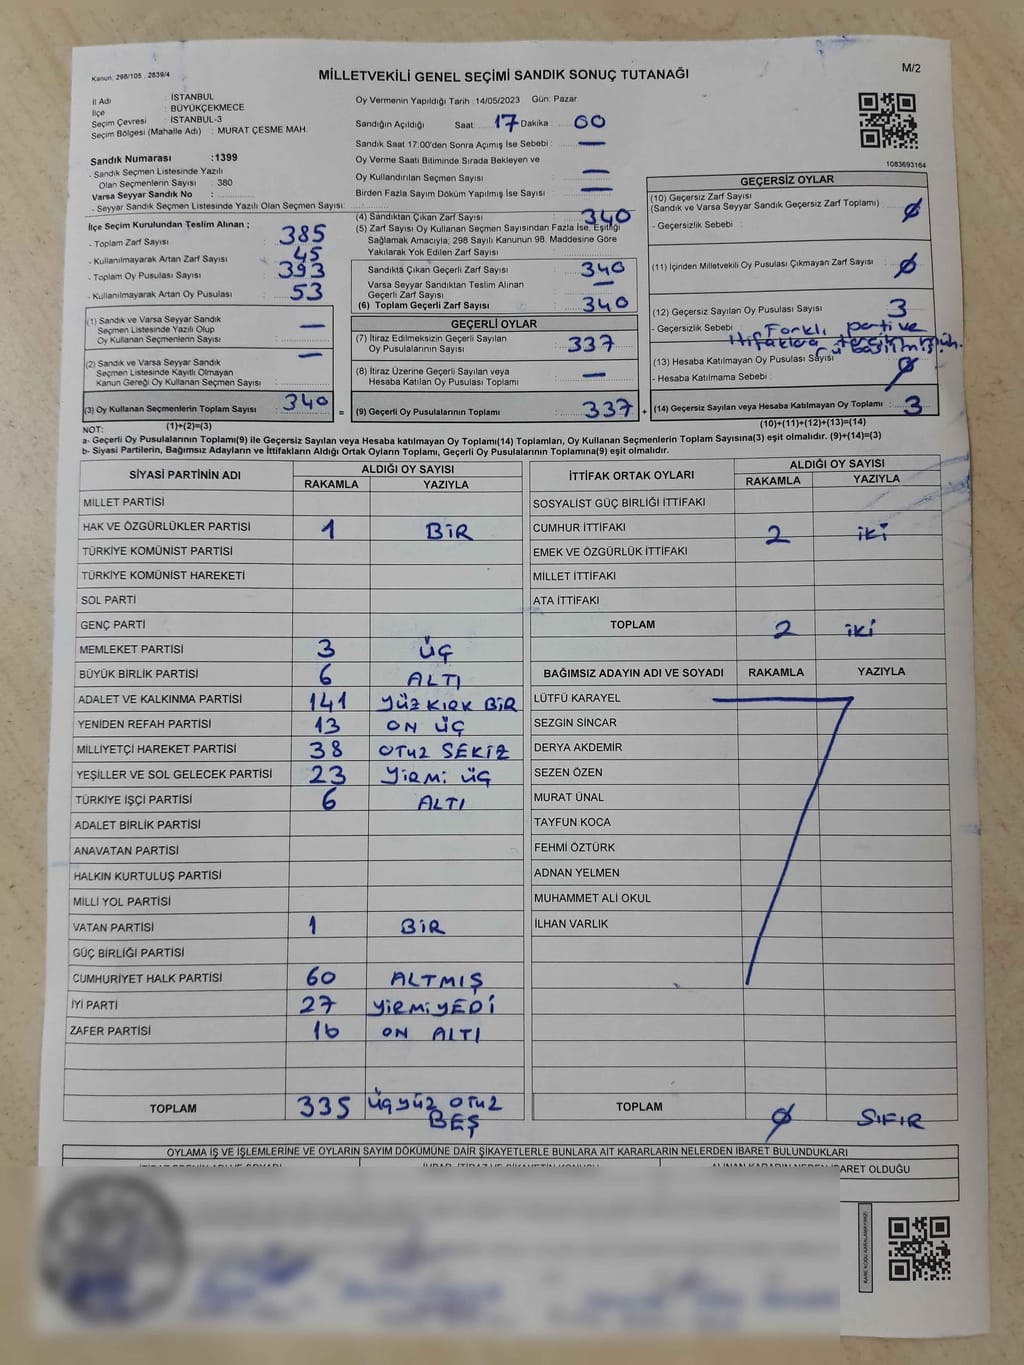 Kanun: 298/105 , 2839/4
MİLLETVEKİLİ GENEL SEÇİMİ SANDIK SONUÇ TUTANAĞI
M/2
İl Adı : İSTANBUL
İlçe : BÜYÜKÇEKMECE
Seçim Çevresi : İSTANBUL-3
Seçim Bölgesi (Mahalle Adı) : MURAT ÇESME MAH.
Sandık Numarası :1399
- Sandık Seçmen Listesinde Yazılı
Olan Seçmenlerin Sayısı : 380
Varsa Seyyar Sandık No :
- Seyyar Sandık Seçmen Listesinde Yazılı Olan Seçmen Sayısı:
Oy Vermenin Yapıldığı Tarih : 14/05/2023 Gün: Pazar
Sandığın Açıldığı Saat 17 Dakika : 00
Sandık Saat 17:00'den Sonra Açımış İse Sebebi : —
Oy Verme Saati Bitiminde Sırada Bekleyen ve
Oy Kullandırılan Seçmen Sayısı : —
Birden Fazla Sayım Döküm Yapılmış İse Sayısı : —
1083693164
İlçe Seçim Kurulundan Teslim Alınan ;
- Toplam Zarf Sayısı : 385
- Kullanılmayarak Artan Zarf Sayısı : 45
- Toplam Oy Pusulası Sayısı : 393
- Kullanılmayarak Artan Oy Pusulası : 53
(1) Sandık ve Varsa Seyyar Sandık
Seçmen Listesinde Yazılı Olup
Oy Kullanan Seçmenlerin Sayısı : —
(2) Sandık ve Varsa Seyyar Sandık
Seçmen Listesinde Kayıtlı Olmayan
Kanun Gereği Oy Kullanan Seçmen Sayısı : —
(3) Oy Kullanan Seçmenlerin Toplam Sayısı : 340
(1)+(2)=(3)
(4) Sandıktan Çıkan Zarf Sayısı : 340
(5) Zarf Sayısı Oy Kullanan Seçmen Sayısından Fazla İse, Eşitliği
Sağlamak Amacıyla; 298 Sayılı Kanunun 98. Maddesine Göre
Yakılarak Yok Edilen Zarf Sayısı :
Sandıkta Çıkan Geçerli Zarf Sayısı : 340
Varsa Seyyar Sandıktan Teslim Alınan
Geçerli Zarf Sayısı : —
(6) Toplam Geçerli Zarf Sayısı : 340
GEÇERLİ OYLAR
(7) İtiraz Edilmeksizin Geçerli Sayılan
Oy Pusulalarının Sayısı : 337
(8) İtiraz Üzerine Geçerli Sayılan veya
Hesaba Katılan Oy Pusulası Toplamı : —
= (9) Geçerli Oy Pusulalarının Toplamı : 337 +
GEÇERSİZ OYLAR
(10) Geçersiz Zarf Sayısı
(Sandık ve Varsa Seyyar Sandık Geçersiz Zarf Toplamı) : Ø
- Geçersizlik Sebebi :
(11) İçinden Milletvekili Oy Pusulası Çıkmayan Zarf Sayısı : Ø
(12) Geçersiz Sayılan Oy Pusulası Sayısı : 3
- Geçersizlik Sebebi : Farklı parti ve
ittifaklara tercih müh.
(13) Hesaba Katılmayan Oy Pusulası Sayısı : Ø
- Hesaba Katılmama Sebebi :
(14) Geçersiz Sayılan veya Hesaba Katılmayan Oy Toplamı : 3
(10)+(11)+(12)+(13)=(14)
NOT:
a- Geçerli Oy Pusulalarının Toplamı(9) ile Geçersiz Sayılan veya Hesaba katılmayan Oy Toplamı(14) Toplamları, Oy Kullanan Seçmenlerin Toplam Sayısına(3) eşit olmalıdır. (9)+(14)=(3)
b- Siyasi Partilerin, Bağımsız Adayların ve İttifakların Aldığı Ortak Oyların Toplamı, Geçerli Oy Pusulalarının Toplamına(9) eşit olmalıdır.
SİYASİ PARTİNİN ADI ALDIĞI OY SAYISI
RAKAMLA YAZIYLA
MİLLET PARTİSİ
HAK VE ÖZGÜRLÜKLER PARTİSİ 1 BİR
TÜRKİYE KOMÜNİST PARTİSİ
TÜRKİYE KOMÜNİST HAREKETİ
SOL PARTİ
GENÇ PARTİ
MEMLEKET PARTİSİ 3 ÜÇ
BÜYÜK BİRLİK PARTİSİ 6 ALTI
ADALET VE KALKINMA PARTİSİ 141 YÜZ KIRK BİR
YENİDEN REFAH PARTİSİ 13 ON ÜÇ
MİLLİYETÇİ HAREKET PARTİSİ 38 OTUZ SEKİZ
YEŞİLLER VE SOL GELECEK PARTİSİ 23 YİRMİ ÜÇ
TÜRKİYE İŞÇİ PARTİSİ 6 ALTI
ADALET BİRLİK PARTİSİ
ANAVATAN PARTİSİ
HALKIN KURTULUŞ PARTİSİ
MİLLİ YOL PARTİSİ
VATAN PARTİSİ 1 BİR
GÜÇ BİRLİĞİ PARTİSİ
CUMHURİYET HALK PARTİSİ 60 ALTMIŞ
İYİ PARTİ 27 YİRMİYEDİ
ZAFER PARTİSİ 16 ON ALTI
TOPLAM 335 ÜÇYÜZ OTUZ
BEŞ
İTTİFAK ORTAK OYLARI ALDIĞI OY SAYISI
RAKAMLA YAZIYLA
SOSYALİST GÜÇ BİRLİĞİ İTTİFAKI
CUMHUR İTTİFAKI 2 iki
EMEK VE ÖZGÜRLÜK İTTİFAKI
MİLLET İTTİFAKI
ATA İTTİFAKI
TOPLAM 2 iki
BAĞIMSIZ ADAYIN ADI VE SOYADI RAKAMLA YAZIYLA
LÜTFÜ KARAYEL
SEZGİN SİNCAR
DERYA AKDEMİR
SEZEN ÖZEN
MURAT ÜNAL
TAYFUN KOCA
FEHMİ ÖZTÜRK
ADNAN YELMEN
MUHAMMET ALİ OKUL
İLHAN VARLIK
TOPLAM Ø SIFIR
OYLAMA İŞ VE İŞLEMLERİNE VE OYLARIN SAYIM DÖKÜMÜNE DAİR ŞİKAYETLERLE BUNLARA AİT KARARLARIN NELERDEN İBARET BULUNDUKLARI
BARET OLDUĞU